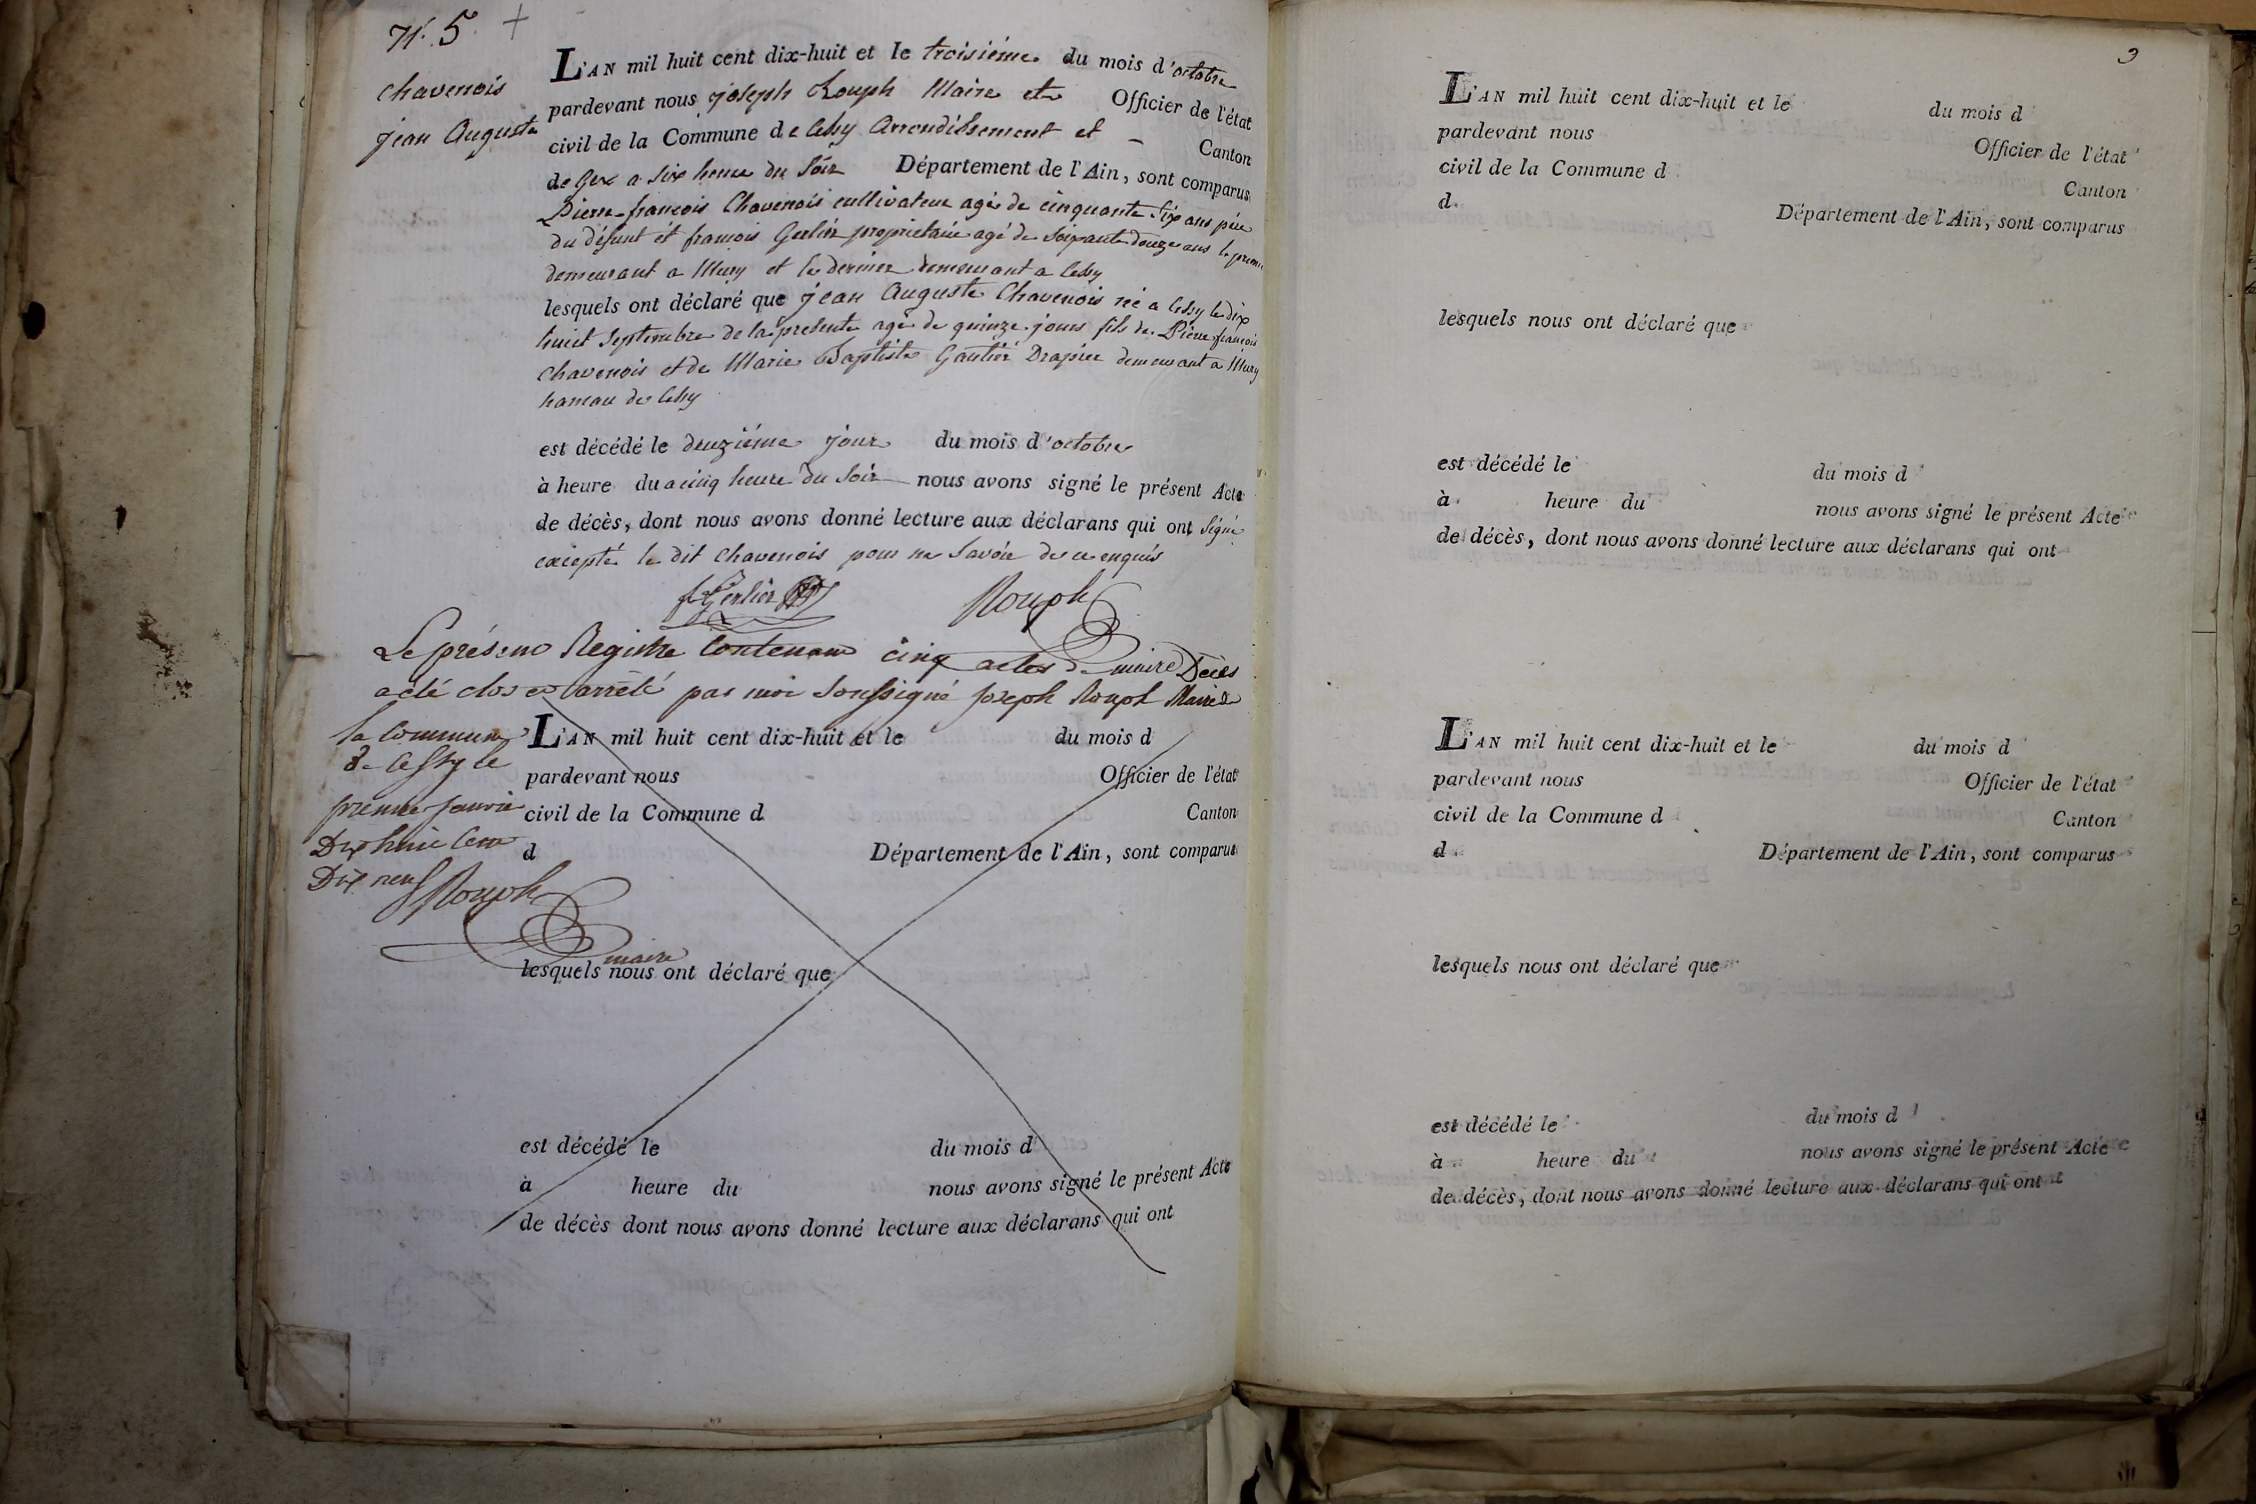 N.º 5 +
Chavenois
jean Auguste
L'AN mil huit cent dix-huit et le troisiéme du mois d'octobre
pardevant nous joseph Rouph Maire et Officier de l'état
civil de la Commune de Cessy Arrondissement et Canton
de Gex a six heure du Soir Département de l'Ain, sont comparus
Pierre-françois Chavenois cultivateur agé de cinquante Six ans père
du défunt et françois Gerlier propriétaire agé de Soixante douze ans le premier
demeurant a Mury et le dernier demeurant a Cessy
lesquels ont déclaré que jean Auguste Chavenois né a Cessy le dix
huit Septembre de la presente agé de quinze jours fils de Pierre françois
Chavenois et de Marie Baptiste Gautier Drapier demeurant a Mury
hameau de Cessy
est décédé le deuziéme jour du mois d'octobre
à heure du a cinq heure du Soir nous avons signé le présent Acte
de décès, dont nous avons donné lecture aux déclarans qui ont Signé
excepté le dit Chavenois pour ne Savoir de ce enquis
f. Gerlier Rouph
maire
Le présent Registre Contenant cinq actes de Décès
a été clos et arrêté par moi Soussigné joseph Rouph Maire de
la Commune
de Cessy le
premier janvier
Dix huit Cent
Dix neuf Rouph
maire
L'AN mil huit cent dix-huit et le du mois d
pardevant nous Officier de l'état
civil de la Commune d Canton
d Département de l'Ain, sont comparus
lesquels nous ont déclaré que
est décédé le du mois d
à heure du nous avons signé le présent Acte
de décès dont nous avons donné lecture aux déclarans qui ont
3
L'AN mil huit cent dix-huit et le du mois d
pardevant nous Officier de l'état
civil de la Commune d Canton
d Département de l'Ain, sont comparus
lesquels nous ont déclaré que
est décédé le du mois d
à heure du nous avons signé le présent Acte
de décès, dont nous avons donné lecture aux déclarans qui ont
L'AN mil huit cent dix-huit et le du mois d
pardevant nous Officier de l'état
civil de la Commune d Canton
d Département de l'Ain, sont comparus
lesquels nous ont déclaré que
est décédé le du mois d
à heure du nous avons signé le présent Acte
de décès, dont nous avons donné lecture aux déclarans qui ont